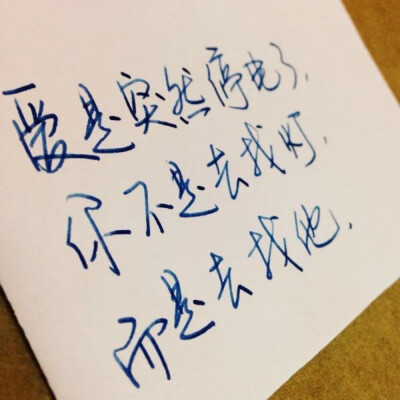 爱是突然停电了，
你不是去找灯，
而是去找他，